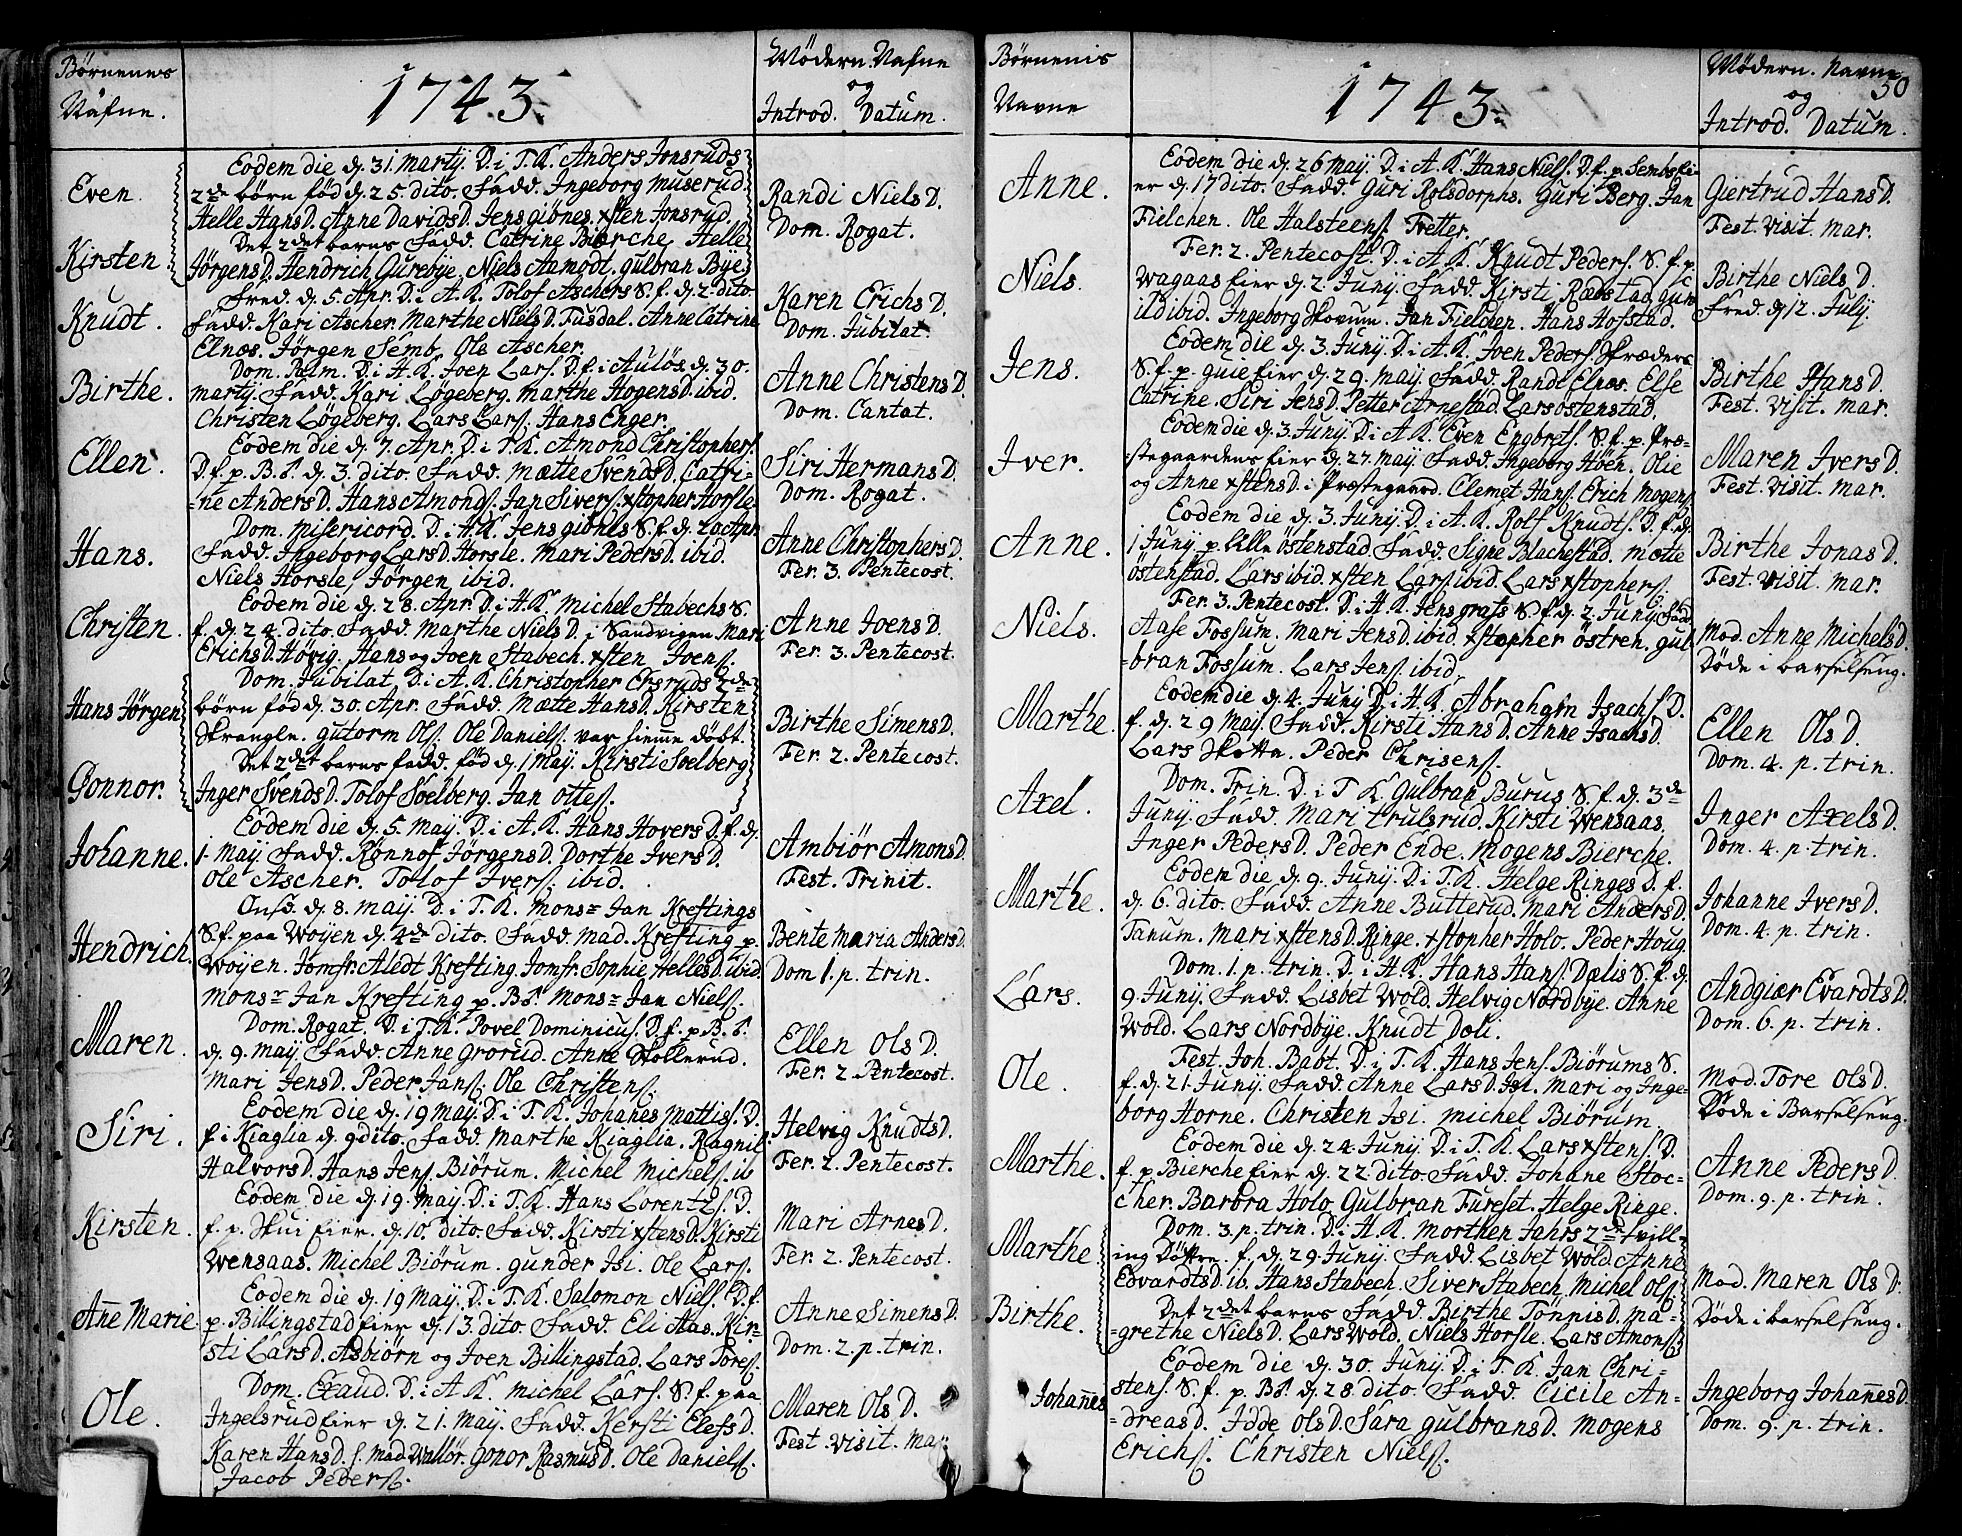 Børnenes
Nafne.
1743.
Mødern. Nafne
og
Introd. Datum.
Even.
Kirsten
Eodem die d. 31. Martij. D. i T. K. Anders Jonsruds
2de børn fød d. 25. dito. Fadd. Ingeborg Muserud.
Helle HansD. Anne DavidsD. Jens giønes. xsten Jonsrud.
Det 2det barns Fadd. Catrine Bierche, Helle
JørgensD. Hendrich Gurebye. Niels Aamodt. gulbran Bye.
Randi NielsD.
Dom. Rogat.
Knudt.
Fred. d. 5. Apr. D. i A. K. Tolof Aschers S. f. d. 2. dito.
Fadd. Kari Ascher. Marthe NielsD. Tusdal. Anne Catrine
Elnæs. Jörgen Semb. Ole Ascher.
Karen ErichsD.
Dom. Jubilat.
Birthe.
Dom. Palm. D. i H. K. Joen Lars. D. f. i Aulös d. 30.
martij. Fadd. Kari Løgeberg. Marthe HogensD. ibid.
Christen Løgeberg. Lars Lars. Hans Enger.
Anne ChristensD.
Dom. Cantat.
Ellen.
Eodem die d. 7. Apr. D. i T. K. Amond Christophers.
D. f. p. B. d. 3. dito. Fadd. Mætte SvendsD. Catri-
-ne AndersD. Hans Amonds. Jan Sivers. xstopher Horsle.
Siri HermansD.
Dom. Rogat.
Hans.
Dom. Misericord. D. i H. K. Jens giönes S. f. d. 20 Apr.
Fadd. Ingeborg LarsD. Horsle. Mari PedersD. ibid.
Niels Horsle, Jørgen ibid.
Anne ChristophersD.
Fer. 3. Pentecost.
Christen.
Eodem die d. 28. Apr. D. i H. K. Michel Stabechs S.
f. d. 24. dito. Fadd. Marthe NielsD. i Sandvigen Mari
ErichsD. Høvig. Hans og Joen Stabech. xsten Joens.
Anne JoensD.
Fer. 3. Pentecost.
Hans Jörgen
Gonnor.
Dom. Jubilat D. i A. K. Christopher Ersruds 2de
børn fød d. 30. Apr. Fadd. Mætte HansD. Kirsten
Skrangle. gutorm Ols. Ole Daniels. var hiemme døbt.
Det 2det barns fadd. fød d. 1 Maij. Kirsti Soelberg
Inger SvendsD. Tolof Soelberg. Jan Ottes.
Birthe SimensD.
Fer. 2. Pentecost.
Johanne.
Eodem die d. 5. Maij. D. i A. K. Hans Hovers D. f. d.
1. Maij. Fadd. Rønnof JørgensD. Dorthe IversD.
Ole Ascher. Tolof Ivers. ibid.
Ambiör AmonsD.
Fest. Trinit.
Hendrich.
Onsd. d. 8. Maij. D. i T. K. Monsr Jan Kreftings
S. f. paa Woijen d. 4de dito. Fadd. Mad. Krefting p.
Woijen. Jomfr. Aledt Krefting. Jomfr. Sophie HellesD. ibid.
Monsr Jan Krefting p. B. Monsr Jan Niels.
Bente Maria AndersD.
Dom 1. p. trin.
Maren.
Dom. Rogat. D. i T. K. Povel Dominicus. D. f. p. B.
d. 9. Maij. Fadd. Anne Grorud. Anne Skollerud.
Mari JensD. Peder Jans. Ole Christens.
Ellen OlsD.
Fer. 2. Pentecost.
Siri.
Eodem die d. 19 Maij. D. i T. K. Johanes Mattis. D.
f. i Kiaglia d. 9 dito. Fadd. Marthe Kiaglia. Ragnil
HalvorsD. Hans Jens. Biörum. Michel Michels. ib
Helvig KnudtsD.
Fer. 2. Pentecost.
Kirsten.
Eodem die d. 19. Maij. D. i T. K. Hans Lorentzs. D.
f. p. Skui Eier. d. 10. dito. Fadd. Kirsti xstensD. Kirsti
Wensaas. Michel Biörum. gunder Isi. Ole Lars.
Mari ArnesD.
Fer. 2. Pentecost.
Añe Marie.
Eodem die d. 19 Maij. D. i T. K. Salomon Niels. D. f.
p. Billingstad eier d. 13. dito. Fadd. Eli Aas. Kir-
sti LarsD. Asbiørn og Joen Billingstad. Lars Tores.
Anne SimensD.
Dom. 2. p. trin.
Ole.
Dom. Exaud. D. i A. K. Michel Lars. S. f. paa
Ingelsrud eier d. 21. Maij. Fadd. Kersti ElefsD.
Karen HansD. Mad. Wallör. Gonor RasmusD. Ole Daniels.
Jacob Peders.
Maren OlsD.
Fest. Visit. Mar.
Børnenis
Navne
1743.
Mødern. Navne
og
Introd. Datum.
50
Anne.
Eodem die d. 26 Maij. D. i A. K. Hans Niels. D. f. p. Sembs Ei-
er d. 17 dito. Fadd. Guri Rolsdorphs. Guri Berg. Jan
Fielchen. Ole Halsteens. Tvetter.
Giertrud HansD.
Fest. Visit. Mar.
Niels.
Fer. 2. Pentecost. D. i A. K. Knudt Peders. S. f. p.
Wagaas Eier d. 2. Junij. Fadd. Kirsti Ræbstad. gun-
ild ibid. Ingeborg Skovum. Jan Fielchen. Hans Hofstad.
Birthe NielsD.
Fred. d. 12. Julij
Jens.
Eodem die d. 3. Junij. D. i A. K. Joen Peders. Skræders
S. f. p. guie Eier d. 29. Maij. Fadd. Randi Elnæs. Else
Catrine. Siri JensD. Petter Arnestad. Lars Östenstad.
Birthe HansD.
Fest. Visit. Mar.
Iver.
Eodem die d. 3. Junij. D. i A. K. Even Engbrets. S. f. p. Præ-
-stegaardens Eier d. 27. Maij. Fadd. Ingeborg Höen. Olie
og Anne xstensD. i Præstegaard. Clemet Hans. Erich Mogens.
Maren IversD.
Fest. Visit. Mar.
Anne.
Eodem die d. 3. Junij. D. i A. K. Rolf Knudts. D. f. d.
1 Junij p. Lille Östenstad. Fadd. Signe Blachestad. Mætte
Östenstad. Lars ibid. xsten Lars. ibid. Lars xstophers.
Birthe JonasD.
Fest. Visit. Mar.
Niels.
Fer. 3. Pentecost. D. i H. K. Jens grafs S. f. d. 2. Junij. Fadd
Aase Fossum. Mari JensD. ibid. xstopher Östren. gul-
-bran Fossum. Lars Jens. ibid.
Mod. Anne MichelsD.
Døde i barselseng.
Marthe.
Eodem die d. 4. Junij D. i H. K. Abraham Isachs D.
f. d. 29 Maij. Fadd. Kirsti HansD. Anne IsachsD.
Lars Skotta. Peder Chrisens.
Ellen OlsD.
Dom. 4. p. trin.
Axel.
Dom. Trin. D. i T. K. Gulbran Burus S. f. d. 3de
Junij. Fadd. Mari Trulsrud. Kirsti Wensaas.
Inger PedersD. Peder Ende. Mogens Bierche.
Inger AxelsD.
Dom. 4. p. trin.
Marthe.
Eodem die d. 9. Junij. D. i T. K. Helge Ringes D. f.
d. 6. dito. Fadd. Anne Butterud. Mari AndersD.
Tanum. Mari xstensD. Ringe. xstopher Holo. Peder Houg.
Johanne IversD.
Dom. 4. p. trin.
Lars.
Dom. 1. p. trin. D. i H. K. Hans Hans. Dælis S. f. d.
9. Junij. Fadd. Lisbet Wold. Helvig Nordbye. Anne
Wold. Lars Nordbye. Knudt Doli.
Andgiær EvardtsD.
Dom. 6. p. trin.
Ole.
Fest. Joh. Babt. D. i T. K. Hans Jens. Biörums S.
f. d. 21. Junij. Fadd. Anne LarsD. Isi. Mari og Inge-
borg Horne. Christen Isi. Michel Biörum.
Mod. Tore OlsD.
Døde i Barselseng.
Marthe.
Eodem die d. 24. Junij. D. i T. K. Lars xstens. D.
f. p. Bierche Eier d. 22. dito. Fadd. Johane Stoc-
cher. Barbra Holo. Gulbran Fureset. Helge Ringe.
Anne PedersD.
Dom. 9. p. trin.
Marthe
Birthe.
Dom. 3. p. trin. D. i H. K. Morthen Jahrs 2de tvill-
ing Døttre. f. d. 29. Junij. Fadd. Lisbet Wold. Anne
EdvardtsD. ib. Hans Stabech. Siver Stabech. Michel Ols.
Det 2det barns Fadd. Birthe TönnisD. Ma-
-grethe NielsD. Lars Wold. Niels Horsle. Lars Amons.
Mod. Maren OlsD.
Døde i barselseng.
Johañes
Eodem die d. 30. Junij. D. i T. K. Jan Chri-
stens. S. f. p. B. d. 28. dito. Fadd. Cicile An-
-dreasD. Idde OlsD. Sara gulbransD. Mogens
Erichs. Christen Niels.
Ingeborg JohañesD.
Dom. 9. p. trin.